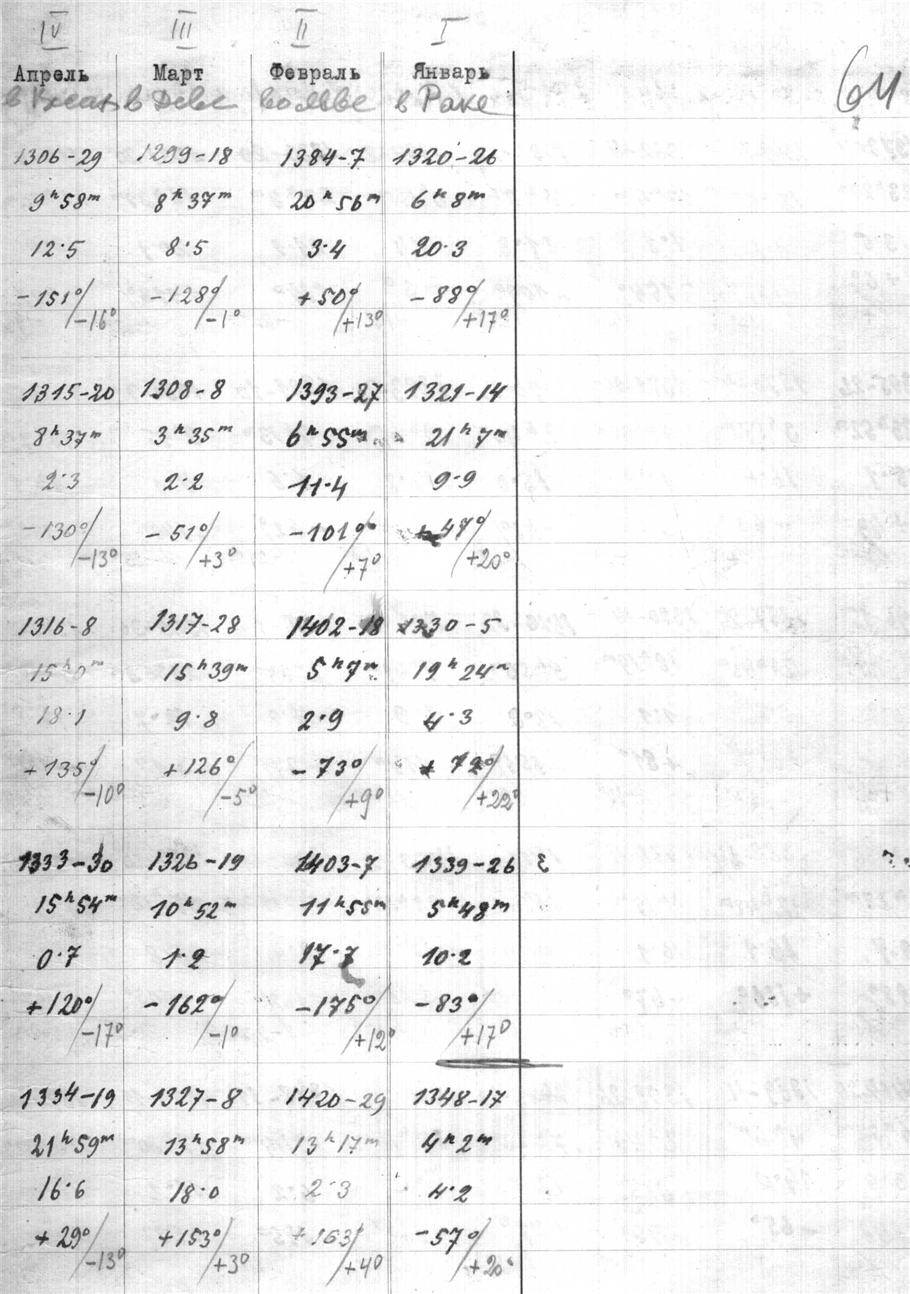 IV III II I
Апрель Март Февраль Январь
в Весах в Деве во льве в Раке 64
1306-29 1299-18 1384-7 1320-26
9ʰ58ᵐ 8ʰ37ᵐ 20ʰ56ᵐ 6ʰ8ᵐ
12·5 8·5 3·4 20·3
-151°/-16° -128°/-1° +50°/+13° -88°/+17°
1315-20 1308-8 1393-27 1321-14
8ʰ37ᵐ 3ʰ35ᵐ 6ʰ55ᵐ 21ʰ7ᵐ
2·3 2·2 11·4 9·9
-130°/-13° -51°/+3° -101°/+7° +47°/+20°
1316-8 1317-28 1402-18 1330-5
15ʰ0ᵐ 15ʰ39ᵐ 5ʰ7ᵐ 19ʰ24ᵐ
18·1 9·8 2·9 4·3
+135°/-10° +126°/-5° -73°/+9° +72°/+22°
1333-30 1326-19 1403-7 1339-26
15ʰ54ᵐ 10ʰ52ᵐ 11ʰ55ᵐ 5ʰ48ᵐ
0·7 1·2 17·7 10·2
+120°/-17° -162°/-1° -175°/+12° -83°/+17°
1334-19 1327-8 1420-29 1348-17
21ʰ59ᵐ 13ʰ58ᵐ 13ʰ17ᵐ 4ʰ2ᵐ
16·6 18·0 2·3 4·2
+29°/-13° +153°/+3° +163°/+4° -57°/+20°